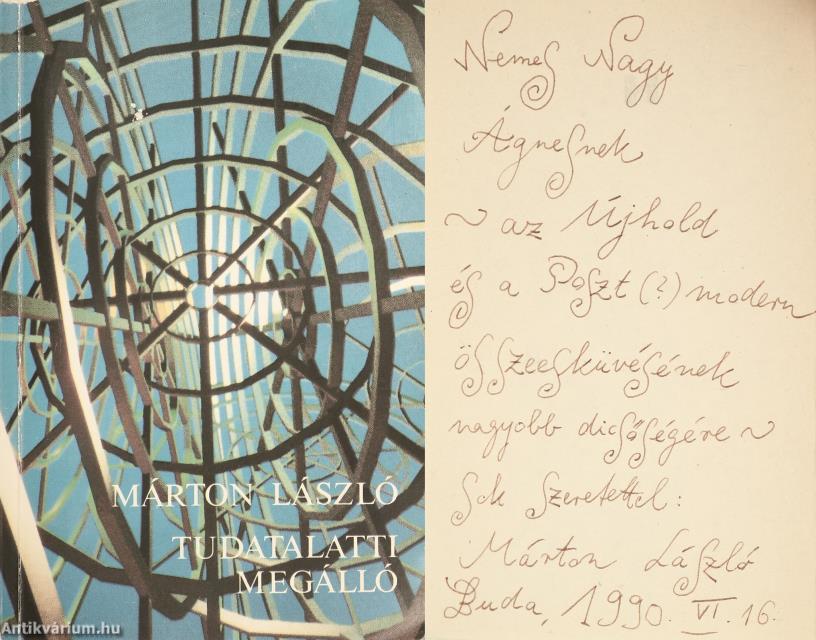 MÁRTON LÁSZLÓ
TUDATALATTI
MEGÁLLÓ
Antikvárium.hu
Nemes Nagy
Ágnesnek
~ az Újhold
és a Poszt(?)modern
összeesküvésének
nagyobb dicsőségére ~
sok szeretettel:
Márton László
Buda, 1990. VI. 16.